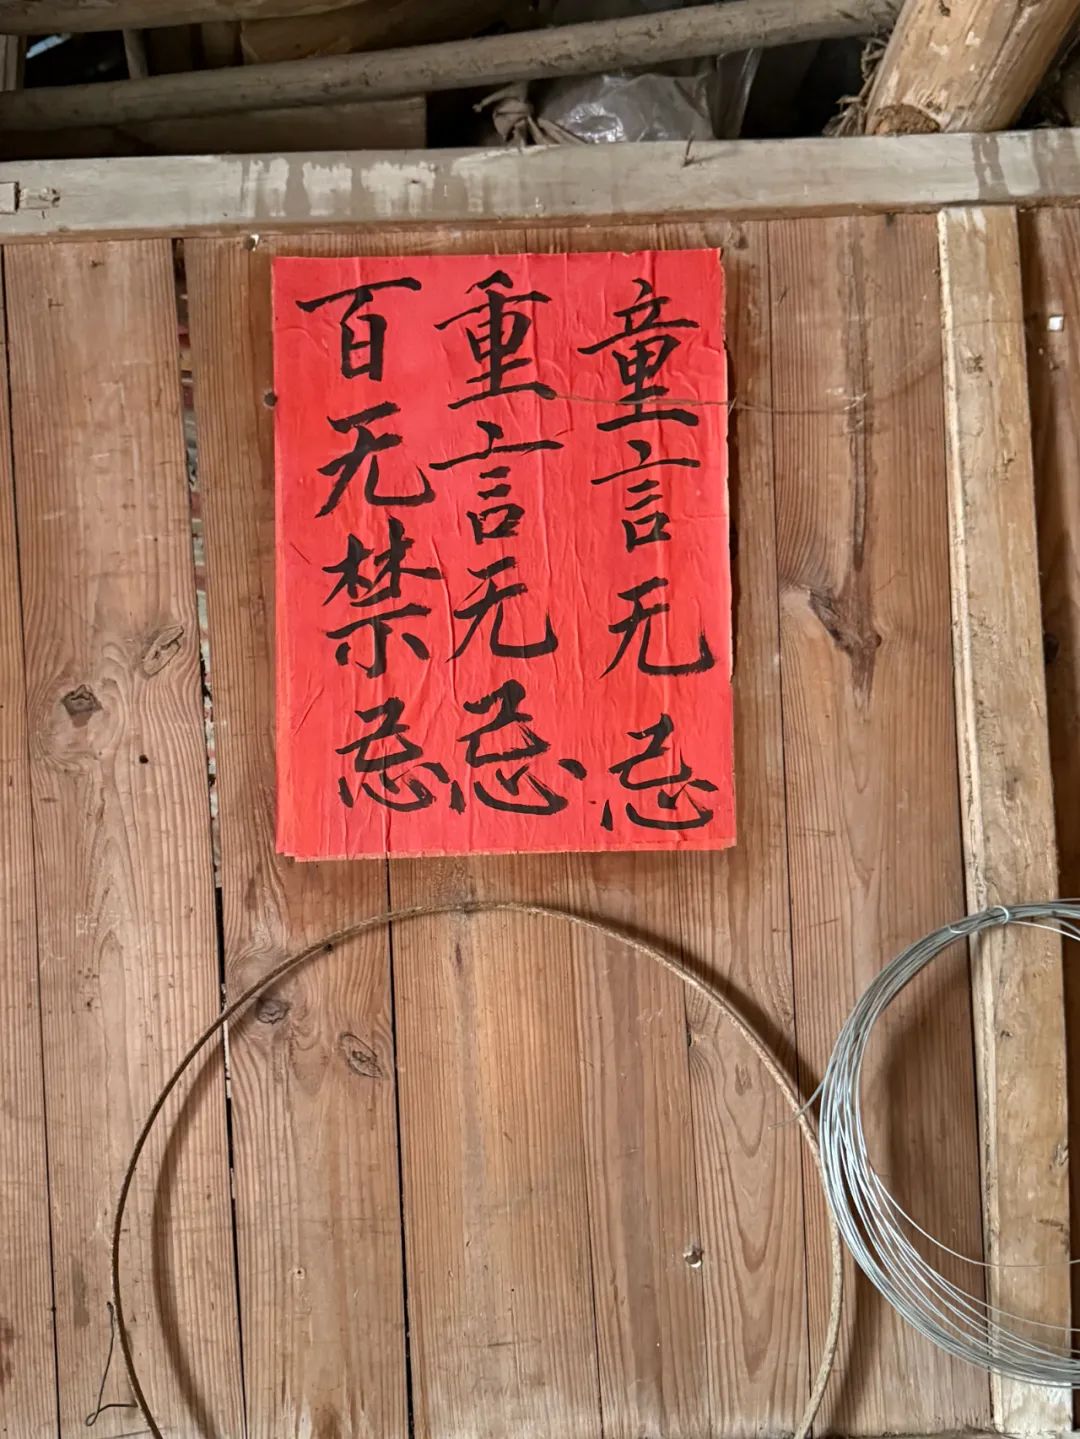 童言无忌
重言无忌
百无禁忌